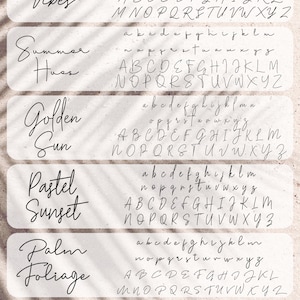 Vibes
M N O P Q R S T U V W X Y Z
Summer
Hues
a b c d e f g h i j k l m
n o p q r s t u v w x y z
A B C D E F G H I J K L M
N O P Q R S T U V W X Y Z
Golden
Sun
a b c d e f g h i j k l m
n o p q r s t u v w x y z
A B C D E F G H I J K L M
N O P Q R S T U V W X Y Z
Pastel
Sunset
a b c d e f g h i j k l m
n o p q r s t u v w x y z
A B C D E F G H I J K L M
N O P Q R S T U V W X Y Z
Palm
Foliage
a b c d e f g h i j k l m
n o p q r s t u v w x y z
A B C D E F G H I J K L M
N O P Q R S T U V W X Y Z